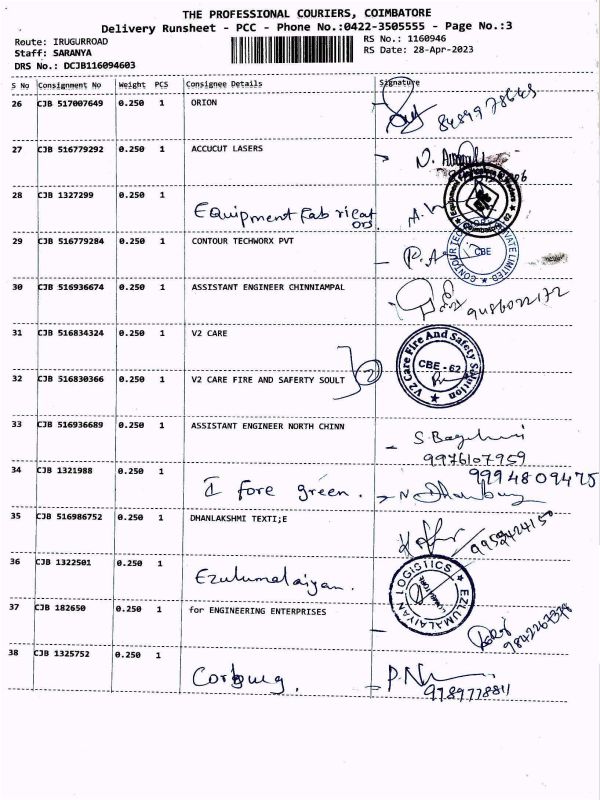 THE PROFESSIONAL COURIERS, COIMBATORE
Delivery Runsheet - PCC - Phone No.:0422-3505555 - Page No.:3
Route: IRUGURROAD
RS No.: 1160946
Staff: SARANYA
RS Date: 28-Apr-2023
DRS No.: DCJB116094603
S No Consignment No Weight PCS Consignee Details Signature
26 CJB 517007649 0.250 1 ORION
27 CJB 516779292 0.250 1 ACCUCUT LASERS
28 CJB 1327299 0.250 1 Equipment Fabricat
ors.
29 CJB 516779284 0.250 1 CONTOUR TECHWORX PVT
CBE
30 CJB 516936674 0.250 1 ASSISTANT ENGINEER CHINNIAMPAL
31 CJB 516834324 0.250 1 V2 CARE
V2 Care Fire And Safety Solution
CBE - 62
2
32 CJB 516830366 0.250 1 V2 CARE FIRE AND SAFERTY SOULT
33 CJB 516936689 0.250 1 ASSISTANT ENGINEER NORTH CHINN
9976107959
9994809475
34 CJB 1321988 0.250 1 I fore green.
35 CJB 516986752 0.250 1 DHANLAKSHMI TEXTI;E
36 CJB 1322501 0.250 1 Ezulumalaiyan.
EZLUMALAIYAN LOGISTICS
37 CJB 182650 0.250 1 for ENGINEERING ENTERPRISES
38 CJB 1325752 0.250 1
9789778811